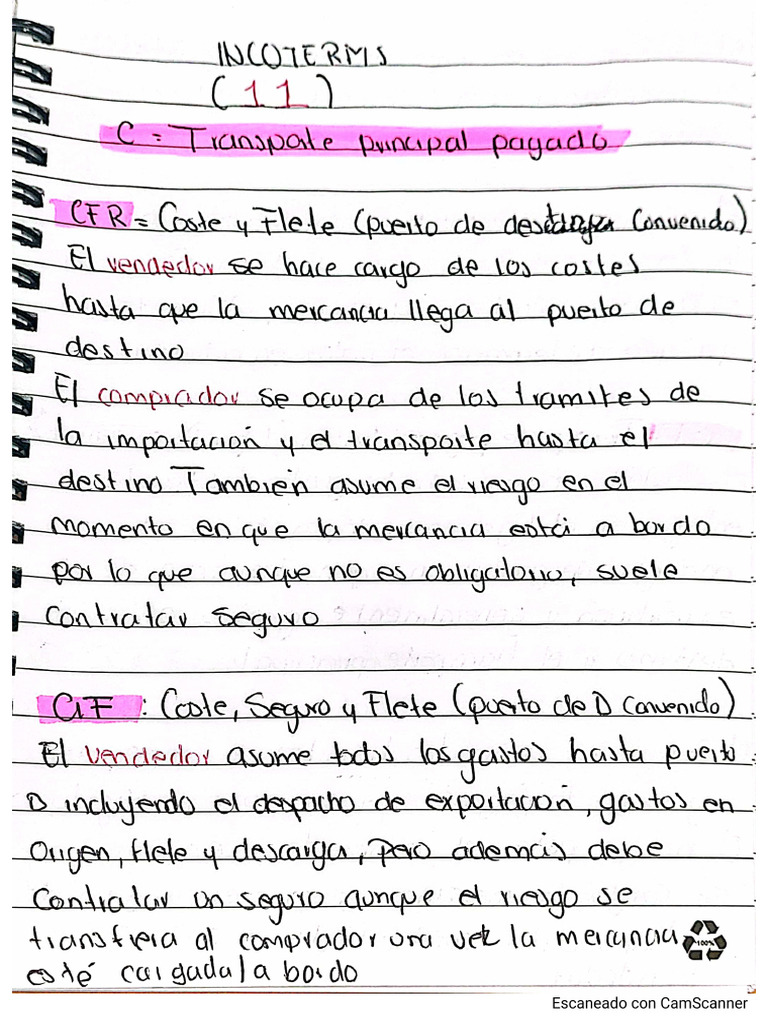 INCOTERMS
(11)
C = Transporte principal pagado
CFR = Coste y Flete (puerto de destino Convenido)
El vendedor se hace cargo de los costes
hasta que la mercancia llega al puerto de
destino
El comprador se ocupa de los tramites de
la importación y el transporte hasta el
destino También asume el riesgo en el
momento en que la mercancia está a bordo
por lo que aunque no es obligatorio, suele
contratar seguro
CIF : Coste, Seguro y Flete (puerto de D Convenido)
El vendedor asume todos los gastos hasta puerto
D incluyendo el despacho de exportación, gastos en
Origen, flete y descarga, pero además debe
Contratar un seguro aunque el riesgo se
transfiera al comprador una vez la mercancia
esté cargada/a bordo
100%
Escaneado con CamScanner